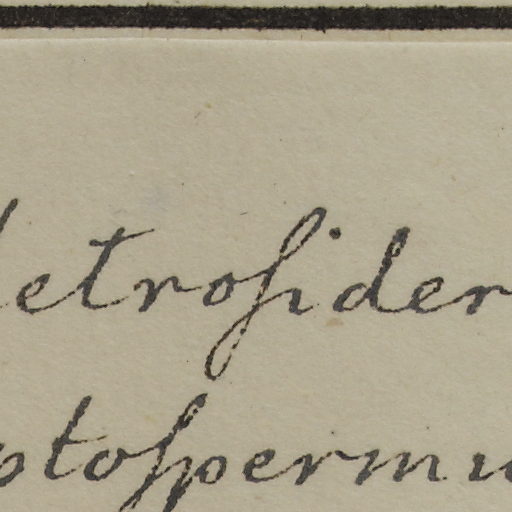 etroſider
ptoſpermu